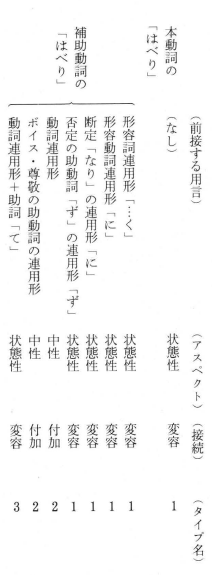 （前接する用言）（アスペクト）（接続）（タイプ名）
本動詞の「はべり」（なし）状態性 変容 1
補助動詞の「はべり」
形容詞連用形「…く」 状態性 変容 1
形容動詞連用形「に」 状態性 変容 1
断定「なり」の連用形「に」 状態性 変容 1
否定の助動詞「ず」の連用形「ず」 状態性 変容 1
動詞連用形 中性 付加 2
ボイス・尊敬の助動詞の連用形 中性 付加 2
動詞連用形＋助詞「て」 状態性 変容 3